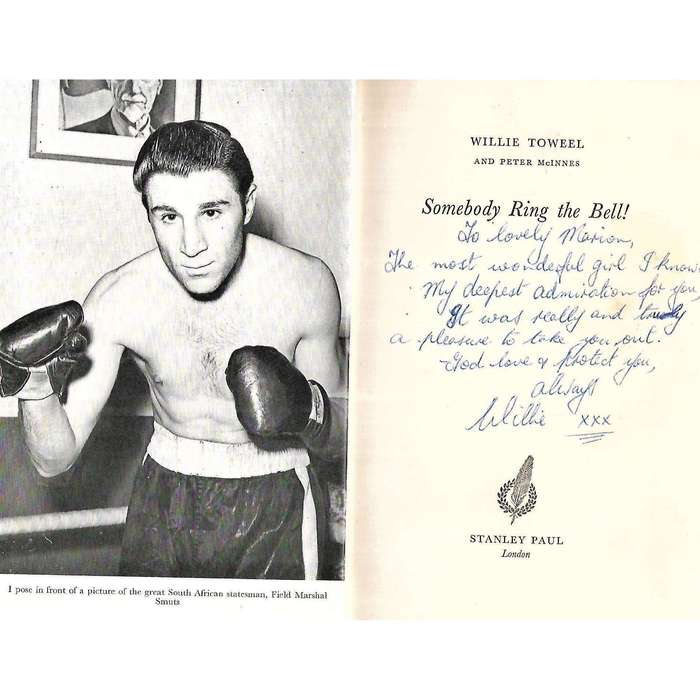 I pose in front of a picture of the great South African statesman, Field Marshal
Smuts
WILLIE TOWEEL
AND PETER McINNES
Somebody Ring the Bell!
To lovely Marion,
The most wonderful girl I know.
My deepest admiration for you
It was really and truly
a pleasure to take you out.
God love & protect you,
always
Willie xxx
STANLEY PAUL
London